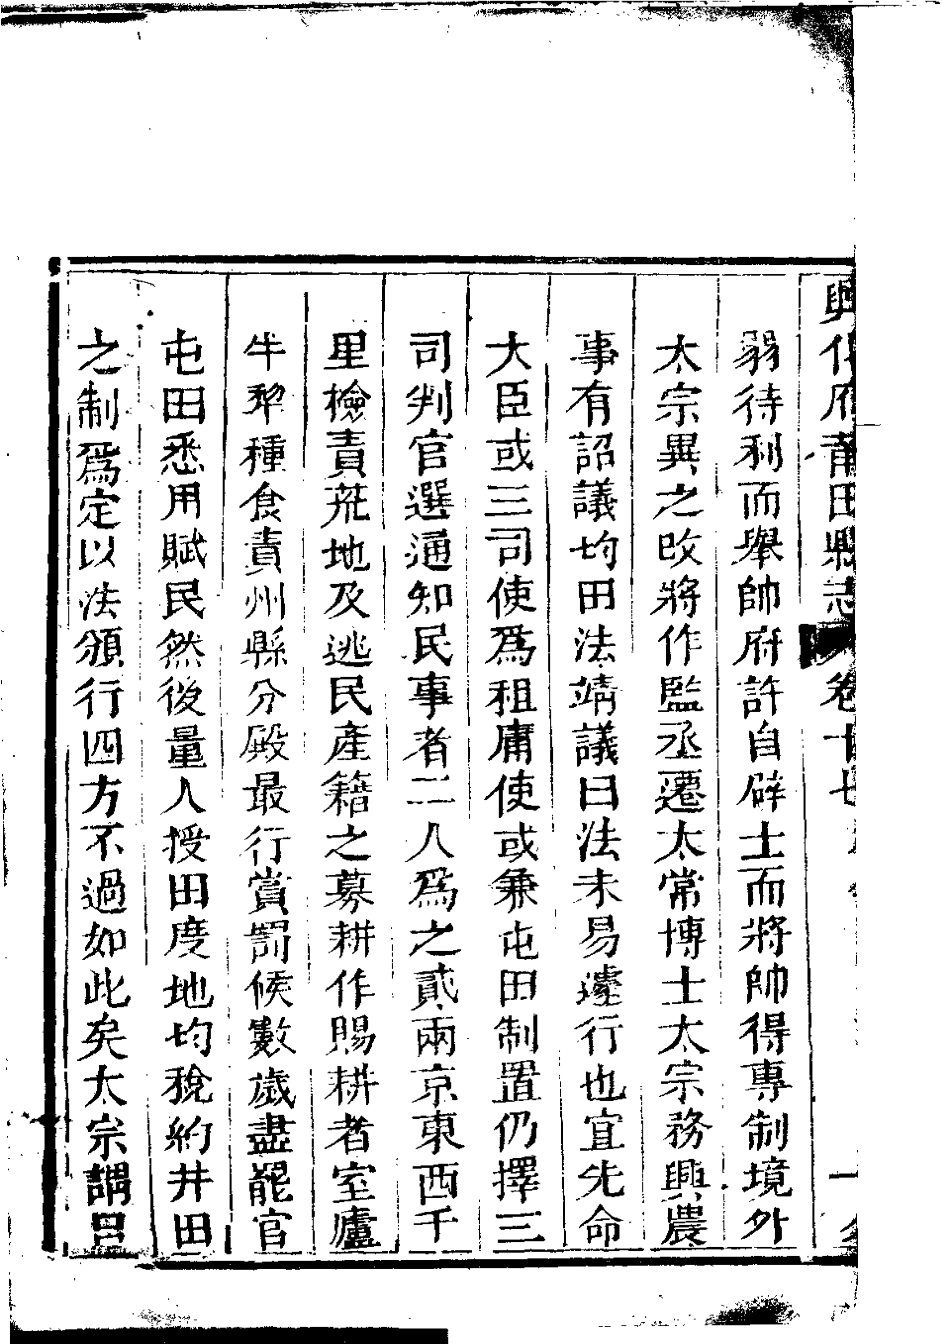 興化府莆田縣志 卷十七
弱待利而舉帥府許自辟士而將帥得專制境外
太宗異之改將作監丞遷太常博士太宗務興農
事有詔議均田法靖議曰法未易遽行也宜先命
大臣或三司使爲租庸使或兼屯田制置仍擇三
司判官選通知民事者二人爲之貳兩京東西千
里檢責荒地及逃民產籍之募耕作賜耕者室廬
牛犂種食責州縣分殿最行賞罰候數歲盡罷官
屯田悉用賦民然後量人授田度地均稅約井田
之制爲定以法頒行四方不過如此矣太宗謂呂